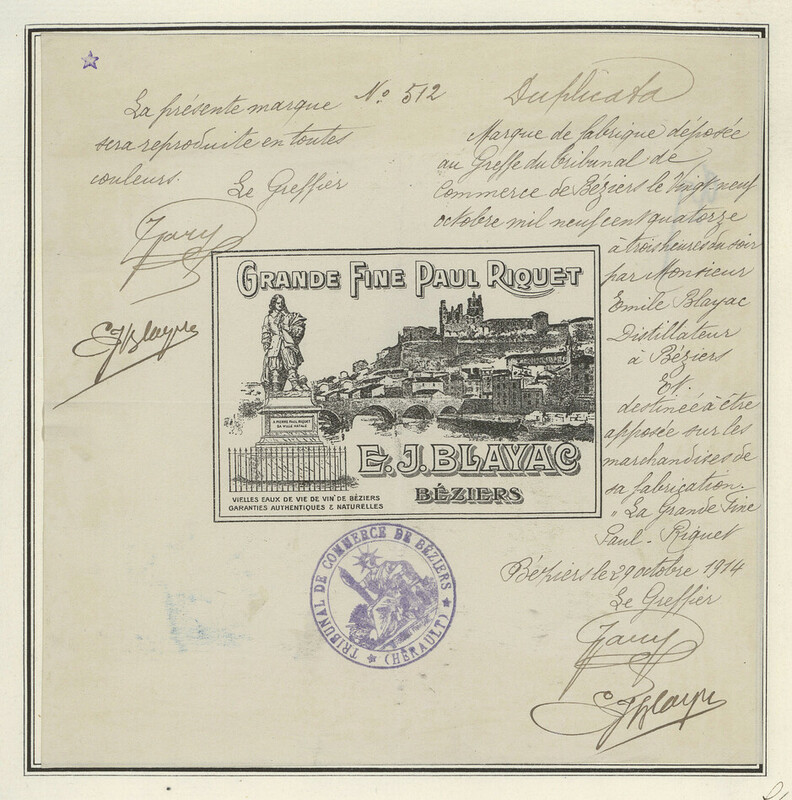 La présente marque
sera reproduite en toutes
couleurs.
Le Greffier
EJBlayac
No 512
Duplicata
Marque de fabrique déposée
au Greffe du tribunal de
Commerce de Béziers le Vingt neuf
octobre mil neuf cent quatorze
à trois heures du soir
par Monsieur
Emile Blayac
Distillateur
à Béziers
Et.
destinée à être
apposée sur les
marchandises de
sa fabrication.
"La Grande Fine
Paul-Riquet
Béziers le 29 octobre 1914
Le Greffier
EJBlayac
GRANDE FINE PAUL RIQUET
A PIERRE PAUL RIQUET
SA VILLE NATALE
E. J. BLAYAC
BÉZIERS
VIELLES EAUX DE VIE DE VIN DE BÉZIERS
GARANTIES AUTHENTIQUES & NATURELLES
TRIBUNAL DE COMMERCE DE BÉZIERS
(HÉRAULT)